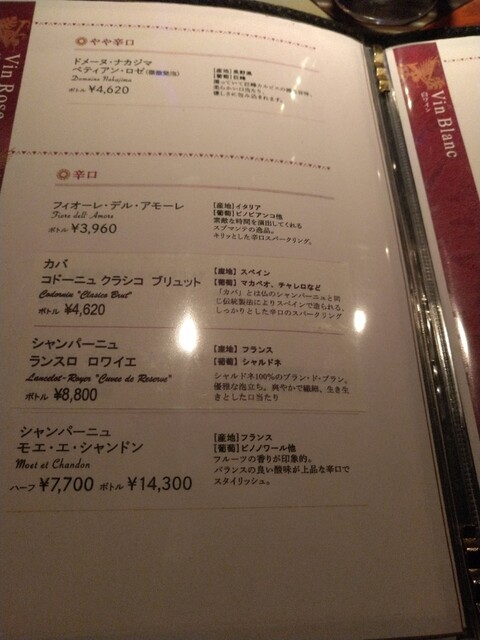 Vin Rose
やや辛口
ドメーヌ・ナカジマ
ペティアン・ロゼ(微發泡)
Domaine Nakajima
ボトル ¥4,620
【産地】長野県
【葡萄】巨峰
辛口
フィオーレ・デル・アモーレ
Fiore dell' Amore
ボトル ¥3,960
【産地】イタリア
【葡萄】ピノビアンコ他
素敵な時間を演出してくれる
スプマンテの逸品。
キリッとした辛口スパークリング。
カバ
コドーニュ クラシコ ブリュット
Codorniu "Clasico Brut"
ボトル ¥4,620
【産地】スペイン
【葡萄】マカベオ、チャレロなど
「カバ」とは仏のシャンパーニュと同
じ伝統製法によりスペインで造られる、
しっかりとした辛口のスパークリング
シャンパーニュ
ランスロ ロワイエ
Lancelot-Royer "Cuvee de Reserve"
ボトル ¥8,800
【産地】フランス
【葡萄】シャルドネ
シャルドネ100%のブラン・ド・ブラン。
優雅な泡立ち。爽やかで繊細、生き生
きとした口当たり
シャンパーニュ
モエ・エ・シャンドン
Moet et Chandon
ハーフ ¥7,700 ボトル ¥14,300
【産地】フランス
【葡萄】ピノノワール他
フルーツの香りが印象的。
バランスの良い酸味が上品な辛口で
スタイリッシュ。
Vin Blanc
白ワイン